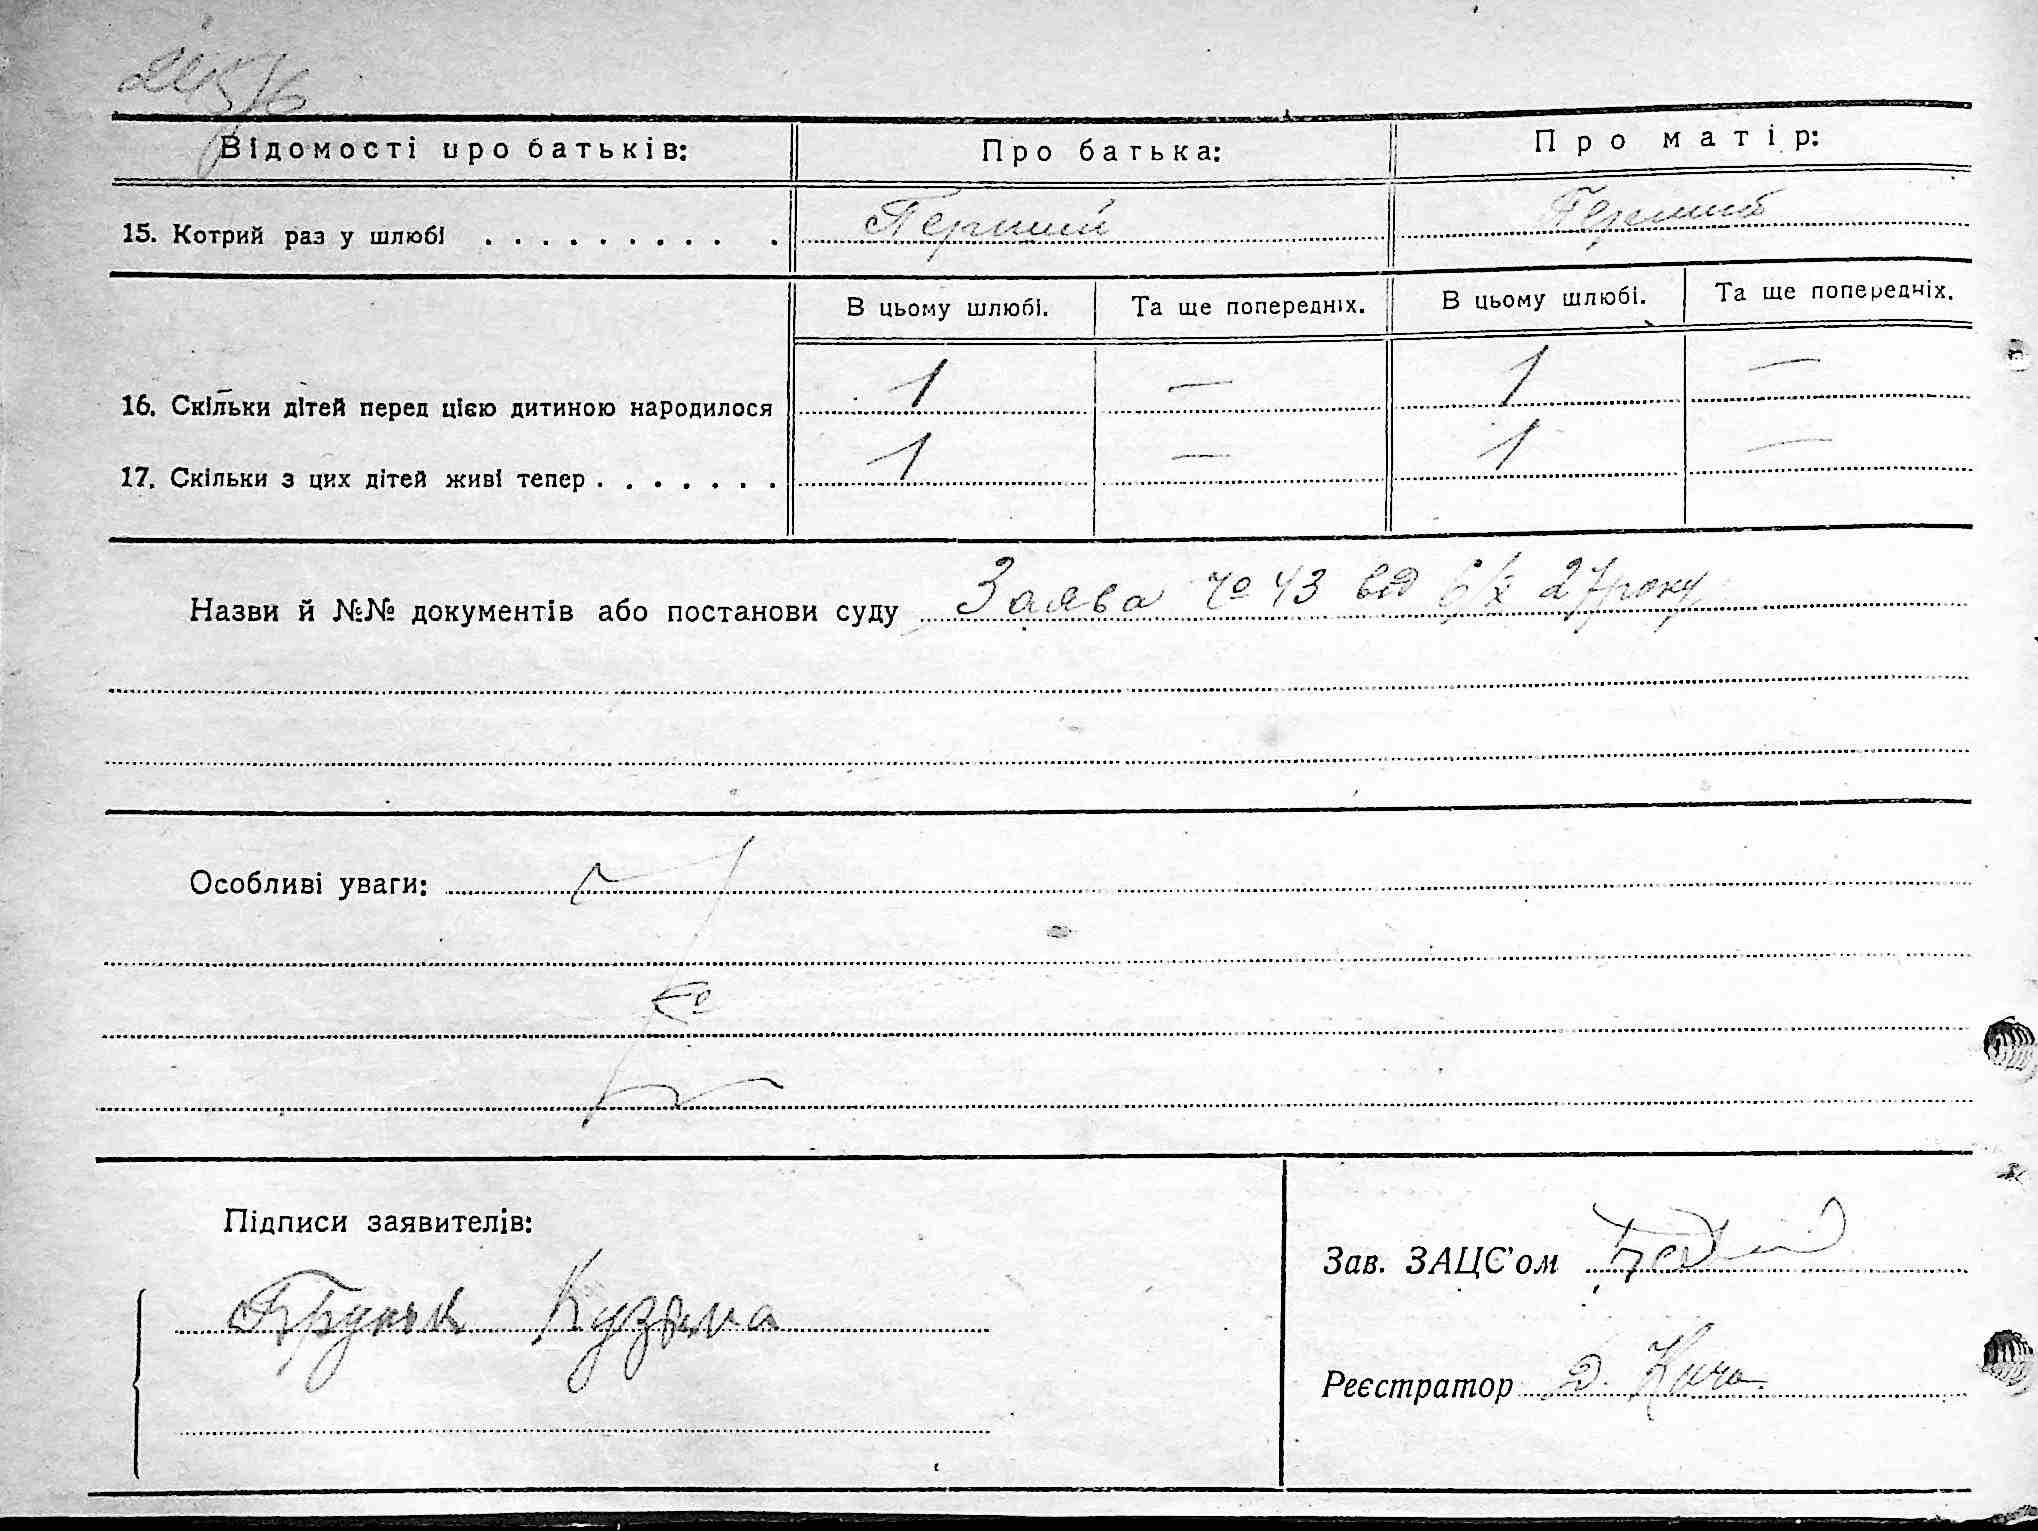 Відомості про батьків: Про батька: Про матір:
15. Котрий раз у шлюбі . . . . . . . . . . . Перший Перший
В цьому шлюбі. Та ще попередніх. В цьому шлюбі. Та ще попередніх.
16. Скільки дітей перед цією дитиною народилося 1 — 1 —
17. Скільки з цих дітей живі тепер . . . . . . . 1 — 1 —
Назви й №№ документів або постанови суду Заява Чо 43 від 6/X 27 року
Особливі уваги:
Підписи заявителів:
Зав. ЗАЦС'ом
Кузьма
Реєстратор Д.